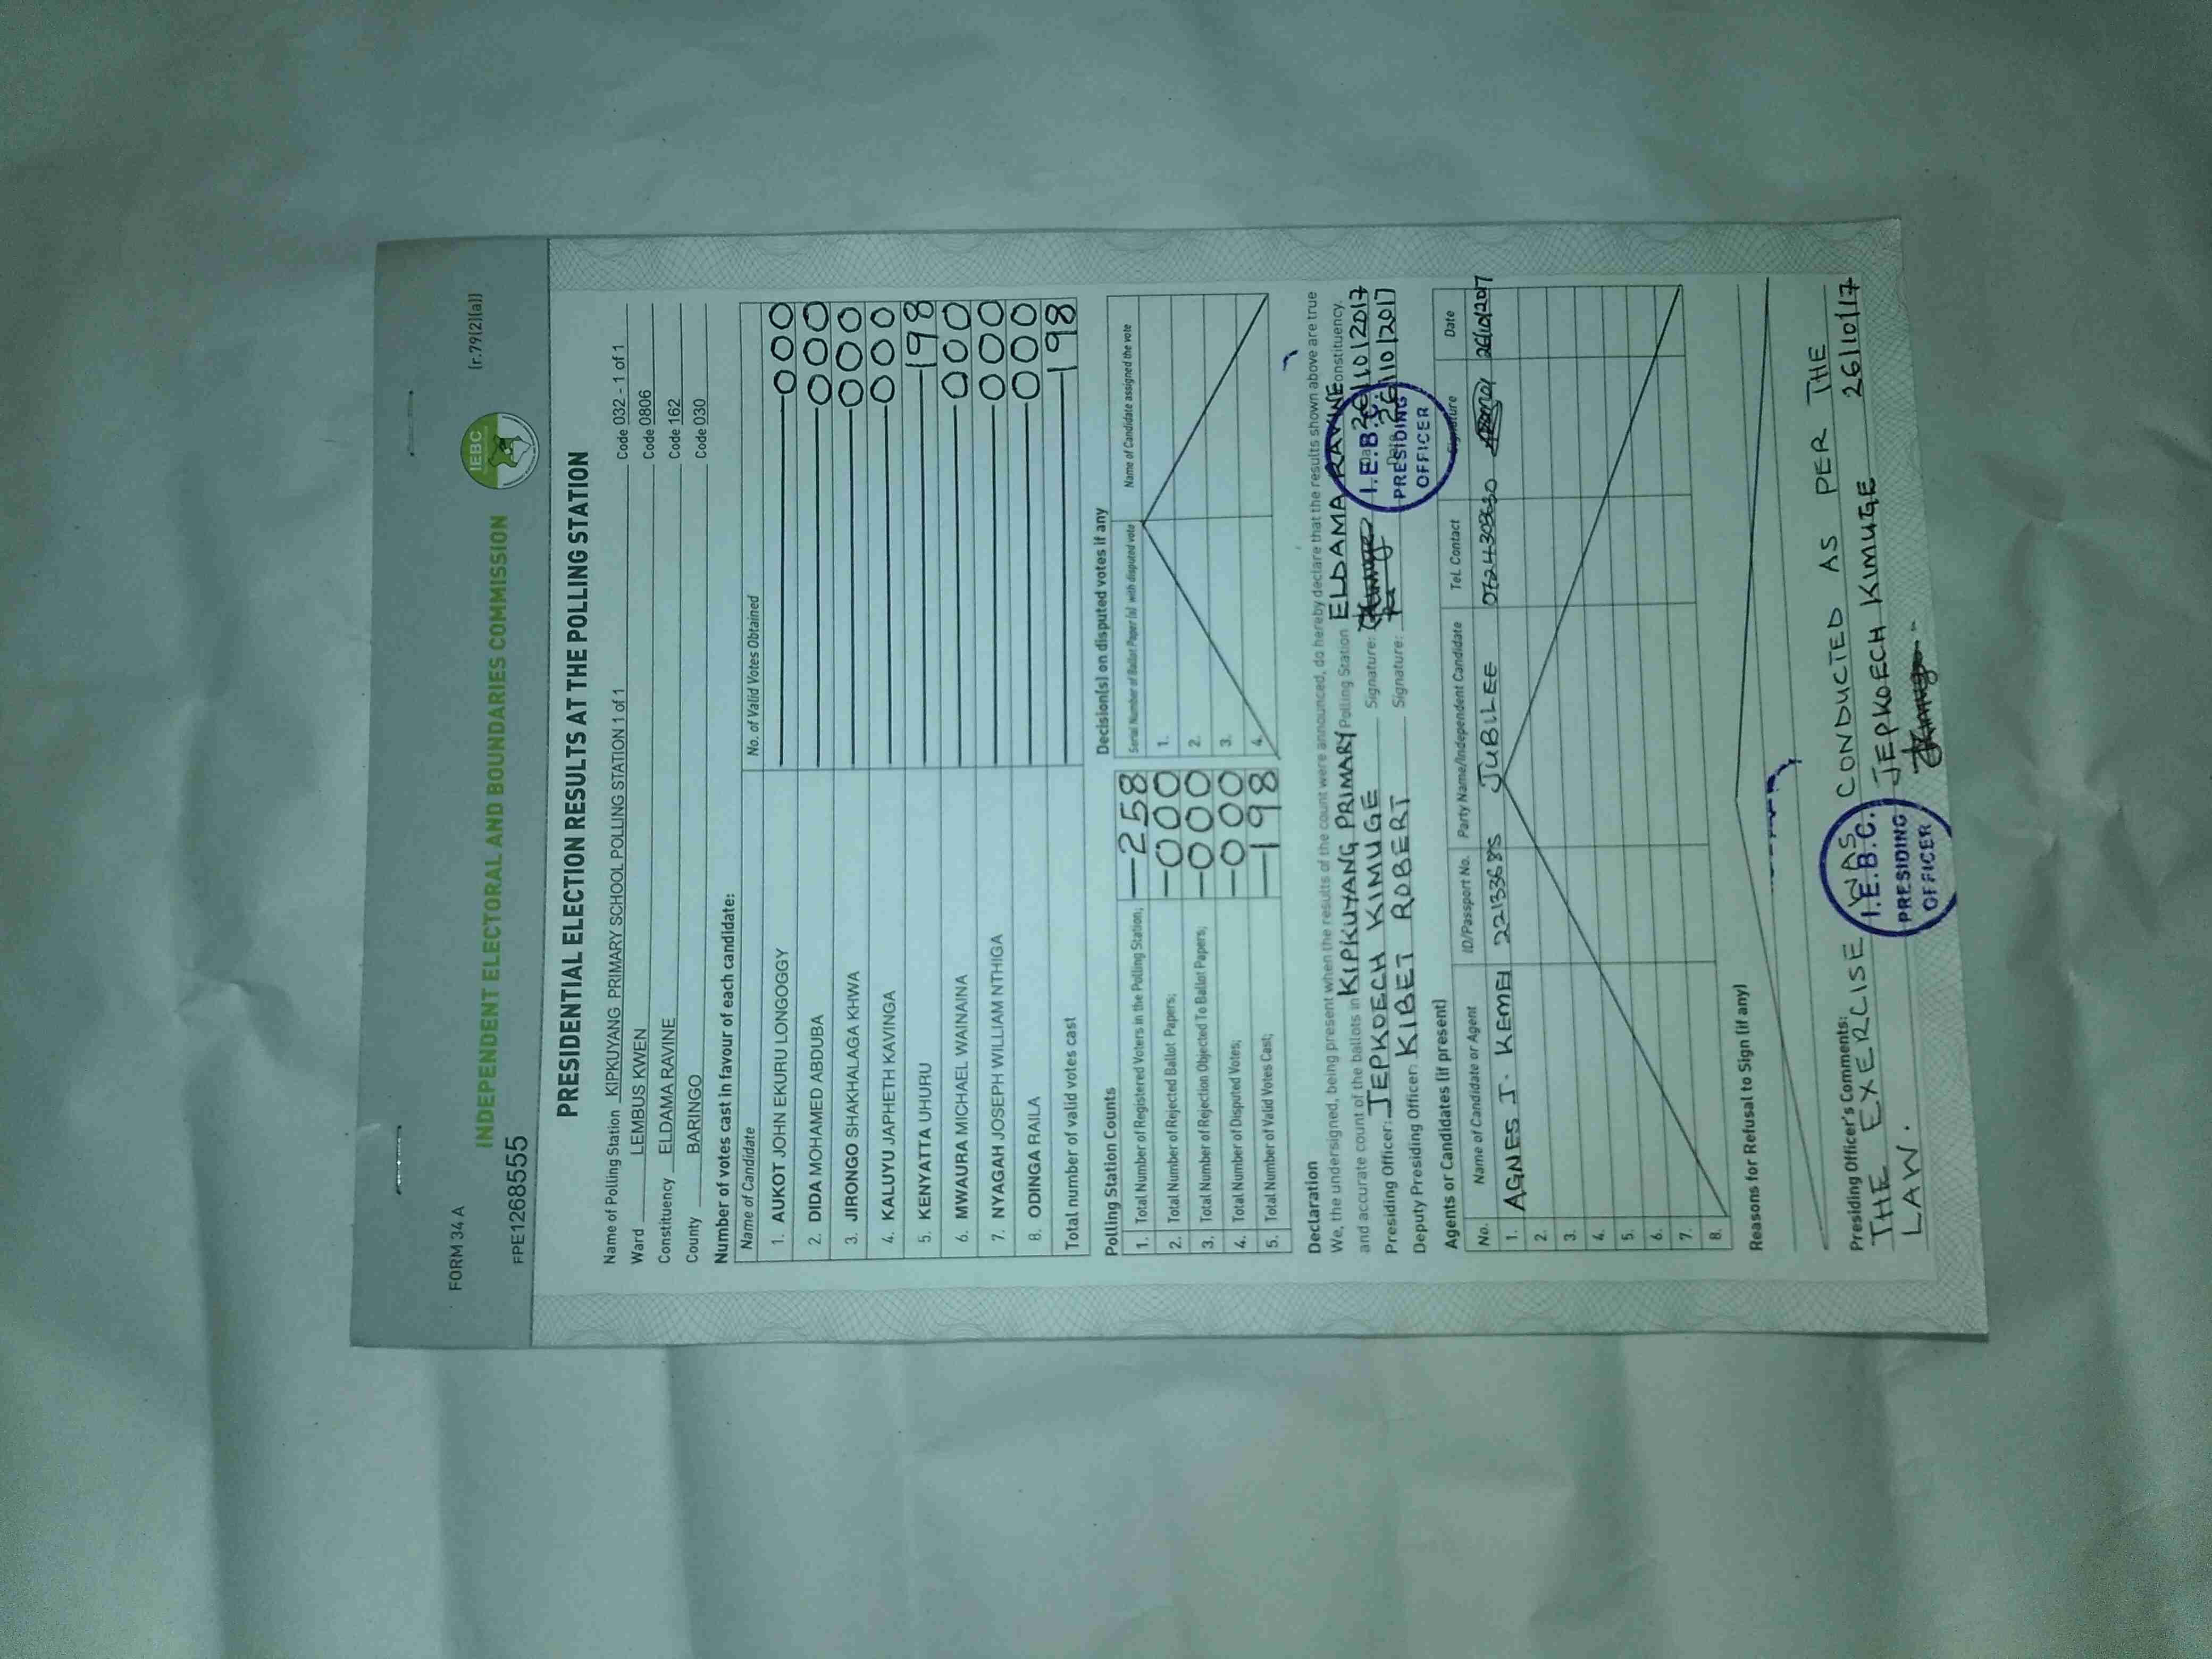 FORM 34 A
(r.79(2)(a))
IEBC
INDEPENDENT ELECTORAL AND BOUNDARIES COMMISSION
FPE1268555
PRESIDENTIAL ELECTION RESULTS AT THE POLLING STATION
Name of Polling Station KIPKUYANG PRIMARY SCHOOL POLLING STATION 1 of 1 Code 032 - 1 of 1
Ward LEMBUS KWEN Code 0806
Constituency ELDAMA RAVINE Code 162
County BARINGO Code 030
Number of votes cast in favour of each candidate:
Name of Candidate No. of Valid Votes Obtained
1. AUKOT JOHN EKURU LONGOGGY 000
2. DIDA MOHAMED ABDUBA 000
3. JIRONGO SHAKHALAGA KHWA 000
4. KALUYU JAPHETH KAVINGA 000
5. KENYATTA UHURU 198
6. MWAURA MICHAEL WAINAINA 000
7. NYAGAH JOSEPH WILLIAM NTHIGA 000
8. ODINGA RAILA 000
Total number of valid votes cast 198
Polling Station Counts
1. Total Number of Registered Voters in the Polling Station; 258
2. Total Number of Rejected Ballot Papers; 000
3. Total Number of Rejection Objected To Ballot Papers; 000
4. Total Number of Disputed Votes; 000
5. Total Number of Valid Votes Cast; 198
Decision(s) on disputed votes if any
Serial Number of Ballot Paper (s) with disputed vote Name of Candidate assigned the vote
1.
2.
3.
4.
Declaration
We, the undersigned, being present when the results of the count were announced, do hereby declare that the results shown above are true
and accurate count of the ballots in KIPKUYANG PRIMARY Polling Station ELDAMA RAVINE Constituency.
Presiding Officer: JEPKOECH KIMUGE Signature: Date 26/10/2017
Deputy Presiding Officer: KIBET ROBERT Signature: Date 26/10/2017
I.E.B.C.
PRESIDING
OFFICER
Agents or Candidates (if present)
No. Name of Candidate or Agent ID/Passport No. Party Name/Independent Candidate Tel. Contact Signature Date
1. AGNES J. KEMEI 22133685 JUBILEE 26/10/2017
2.
3.
4.
5.
6.
7.
8.
Reasons for Refusal to Sign (if any)
Presiding Officer's Comments:
THE EXERCISE WAS CONDUCTED AS PER THE
LAW. JEPKOECH KIMUGE 26/10/17
I.E.B.C.
PRESIDING
OFFICER